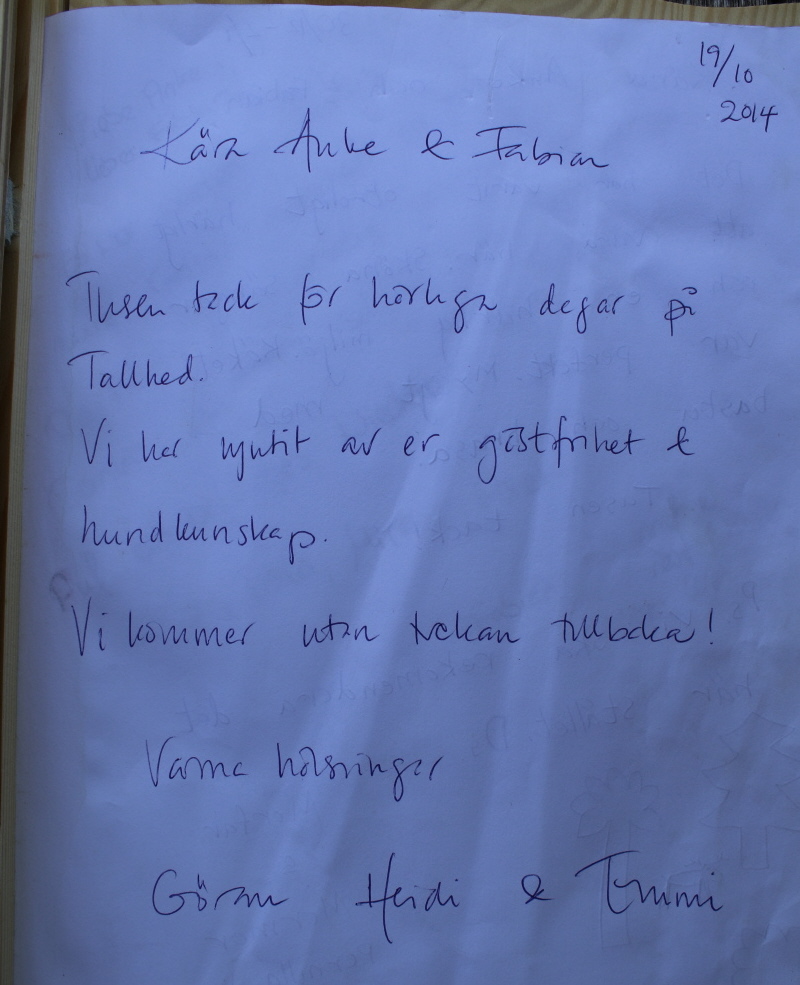 19/10
2014
Kära Anke & Fabian
Tusen tack för härliga dagar på
Tallhed.
Vi har njutit av er gästfrihet &
hundkunskap.
Vi kommer utan tvekan tillbaka!
Varma hälsningar
Göran Heidi & Emmi